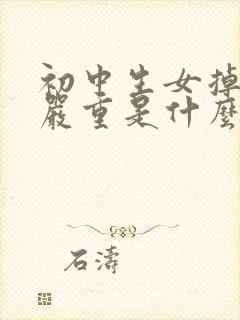 初中生女掉
嚴重是什麼
石濤